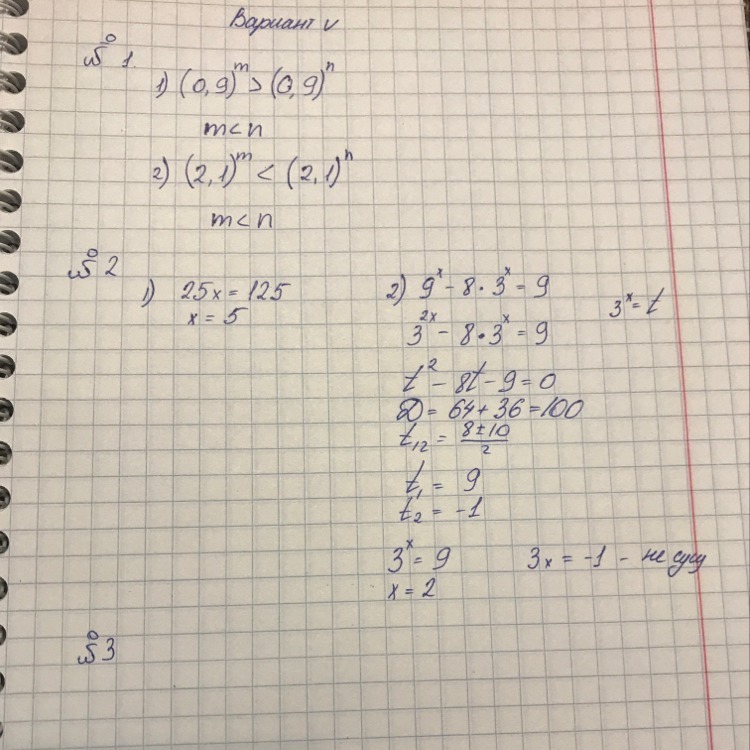 Вариант V
№ 1.
1) (0,9)^m > (0,9)^n
m < n
2) (2,1)^m < (2,1)^n
m < n
№ 2
1) 25x = 125
x = 5
2) 9^x - 8 · 3^x = 9
3^x = t
3^2x - 8 · 3^x = 9
t^2 - 8t - 9 = 0
D = 64 + 36 = 100
t_12 = (8 ± 10)/2
t_1 = 9
t_2 = -1
3^x = 9
3x = -1 - не сущ
x = 2
№ 3